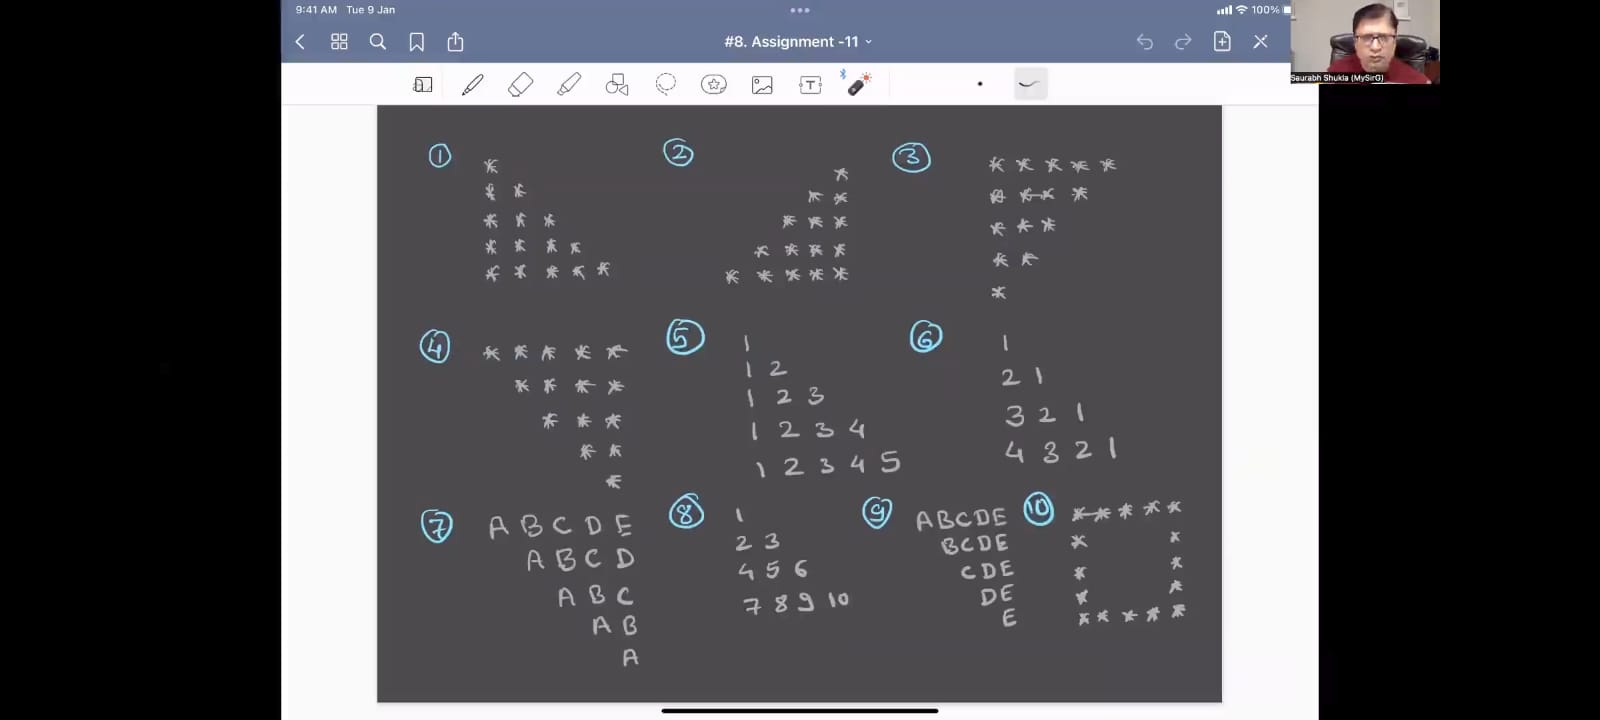 9:41 AM Tue 9 Jan
100%
#8. Assignment -11
Saurabh Shukla (MySirG)
T
1
*
* *
* * *
* * * *
* * * * *
2
*
* *
* * *
* * * *
* * * * *
3
* * * * *
* * * *
* * *
* *
*
4
* * * * *
* * * *
* * *
* *
*
5
1
1 2
1 2 3
1 2 3 4
1 2 3 4 5
6
1
2 1
3 2 1
4 3 2 1
7
A B C D E
A B C D
A B C
A B
A
8
1
2 3
4 5 6
7 8 9 10
9
A B C D E
B C D E
C D E
D E
E
10
* * * * *
* *
* *
* *
* * * * *